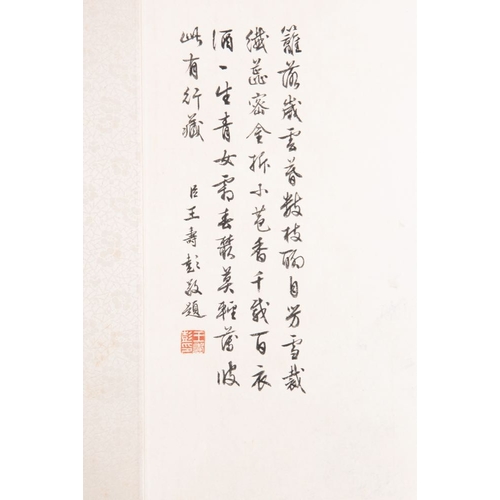 籬落歲雲暮數枝聊自芳雪裁
纖蕊密金拆小苞香千載百衣
酒一生青女霜春叢莫輕薄彼
此有行藏
臣王壽彭敬題